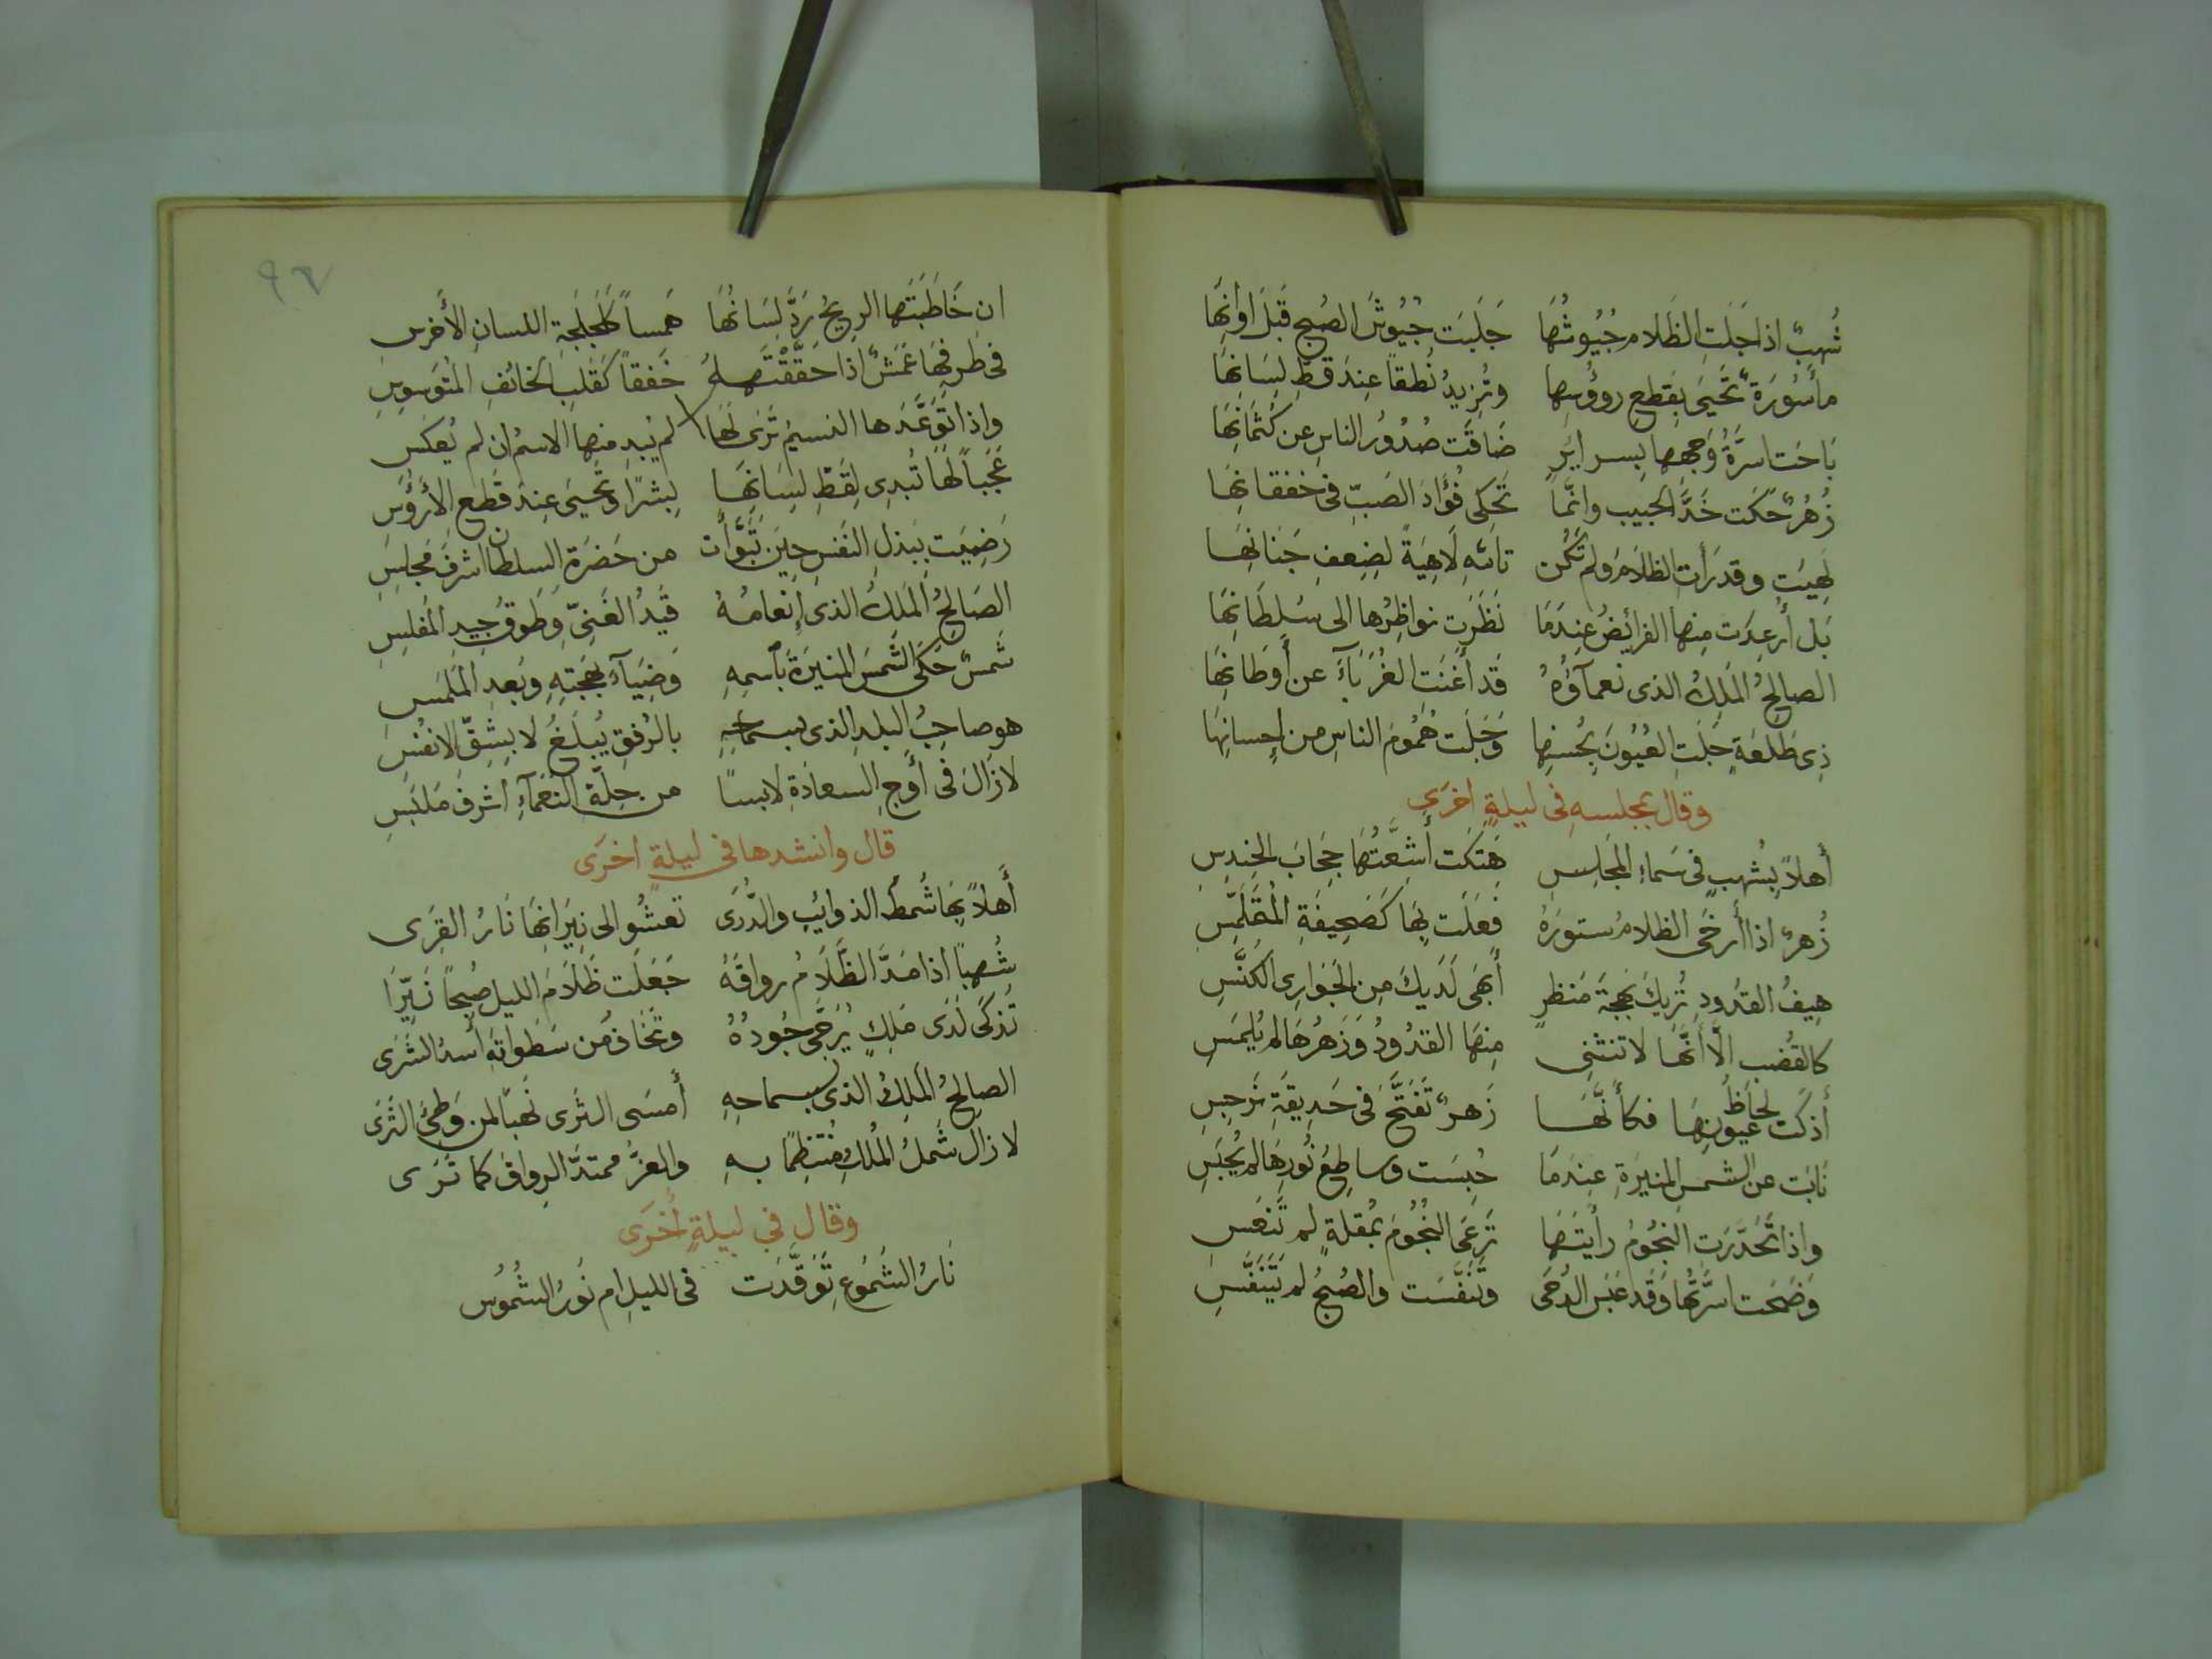 شُهبٌ اذا جَلَتِ الظَلام جُيُوشُهَا جَلَبَت جِيُوشَ الصُبحِ قَبلَ اَوانِهَا
مأسُورَةٌ تَحيَى بِقَطعِ روؤُسِها وتُزِيدُ نُطقاً عِندَ قطِّ لِسَانِهَا
بَاحَت اسرَّةُ وَجهِها بِسرايرٍ ضَاقَت صُدُورُ الناسِ عن كتمَانِهَا
زُهرٌ حكَت خَدَّ الحبيب وانّمَا تَحكى فُؤادَ الصَبّ فى خفقانِهَا
لَهِيَت وقد رَأتِ الظلاَمَ ولم تكُن تاللهِ لاَهِيَةً لِضِعفِ جَنَانِهَا
بَل أُرعِدَت مِنها الفرائِصُ عِندَمَا نَظَرَت نواظِرُها الى سُلطَانِهَا
الصالحُ المَلِكُ الذى نعمآؤُهُ قَد أغنَت الغُرَبَآءَ عن أوطَانِهَا
ذِى طَلعَةٍ جَلَتِ العُيُونَ بِحُسنِها وَجَلَت هُمُومَ الناسِ من اِحسانِهَا
وقال بمجلسهِ فى ليلةٍ اخرَى
أهلاً بِشُهبٍ فى سَماءِ المجَلِسِ هَتكَت أشِعَّتُهَا حِجَابَ الحِندِسِ
زُهرٌ اذا أرخَى الظلامُ ستورَهُ فَعَلَت بِهَا كَصَحِيفَةِ المُتَلَمِّسِ
هِيفُ القدُودِ تُرِيكَ بَهجَةَ مَنظَرٍ أبهَى لَدَيكَ مِن الجَوارِى الكنَّسِ
كالقُضبِ اِلَّا أَنّهَا لا تنثنِى مِنهَا القدُودُ وَزَهرُهَا لم يُلمَسِ
أَذكَت لحَاظَ عيُونِهَا فكأنَّهَا زَهرٌ تَفَتَّحَ فى حَدِيقَةِ نَرجِسِ
نَابَت عن الشمسِ المنيرَةِ عِندَمَا حُبِسَت وساطِعُ نُورِهَا لم يُحبَسِ
واذا تحَدَّرَتِ النجُومُ رأيتَها تَرعَى النجُومَ بمُقلةٍ لم تَنعَسِ
وَضَحَت اسرَّتُها وَقد عَبَسَ الدُجَى وتنَفَّسَت والصُبحُ لم يَتَنَفَّسِ
٩٧
ان خَاطَبَتها الريحُ رَدَّ لِسَانُهَا هَمساً كَلَجلَجَةِ اللسانِ الأخرسِ
فى طَرفِهَا عَمَشٌ اذا حَقَّقتَهُ خَفقاً كَقَلبِ الخائفِ المتوَسوِسِ
واذا تَوَعَّدَها النسيمُ تَرَى لَهَا لم يُبدِ منها الاسمُ ان لم يُعكَسِ
عَجَباً لَهَا تُبدِى لِقَطِّ لِسَانِهَا بِشرًا وتَحيَى عِندَ قَطعِ الأرؤُسِ
رَضِيَت ببَذلِ النَفسِ حِينَ تَبَوَّأت من حَضرَةِ السلطانِ اشرفَ مَجلِسِ
الصَالحُ المَلِكُ الذى اِنعَامُهُ قَيدُ الغَنِىّ وطَوقُ جِيدِ المُفلِسِ
شَمسٌ حَكَى الشَمسَ المنيرَةَ باسمِهِ وَضِيَآءِ بَهجَتِهِ وبُعدِ المَلمَسِ
هو صاحبُ البلدِ الذى بسماحِهِ بالرُفقِ يُبلَغُ لا بِشِقِّ الانفُسِ
لا زَالَ فى أوجِ السعادَةِ لابسًا من حِلّة النَعمَآءِ اشرفَ مَلبَسِ
قال وانشدها فى ليلةٍ اخرَى
أَهلاً بِهَا شُمطَ الذوائِبِ والذُرَى تعشُو الى نِيرَانِهَا نَارُ القِرَى
شُهباً اذا مَدَّ الظَّلَامُ رواقَهُ جَعَلَت ظَلاَمَ الليلِ صُبحًا نَيّرَا
تُذكَى لَدَى مَلِكٍ يُرَجَّى جُودُهُ وتخَافُ من سَطَواتِهِ أُسدُ الشَرَى
الصالحُ المَلِكُ الذى بسماحهِ أمسَى الثَرَى نَهبًا لمن وَطِئَ الثَرَى
لا زال شَملُ المُلكِ مُنتَظِمًا بهِ والعزُّ ممتدَّ الرِواقِ كما تَرَى
وقال فى ليلةٍ أخرَى
نَارُ الشُمُوعِ تَوَقَّدَت فى الليلِ ام نُورُ الشُمُوس